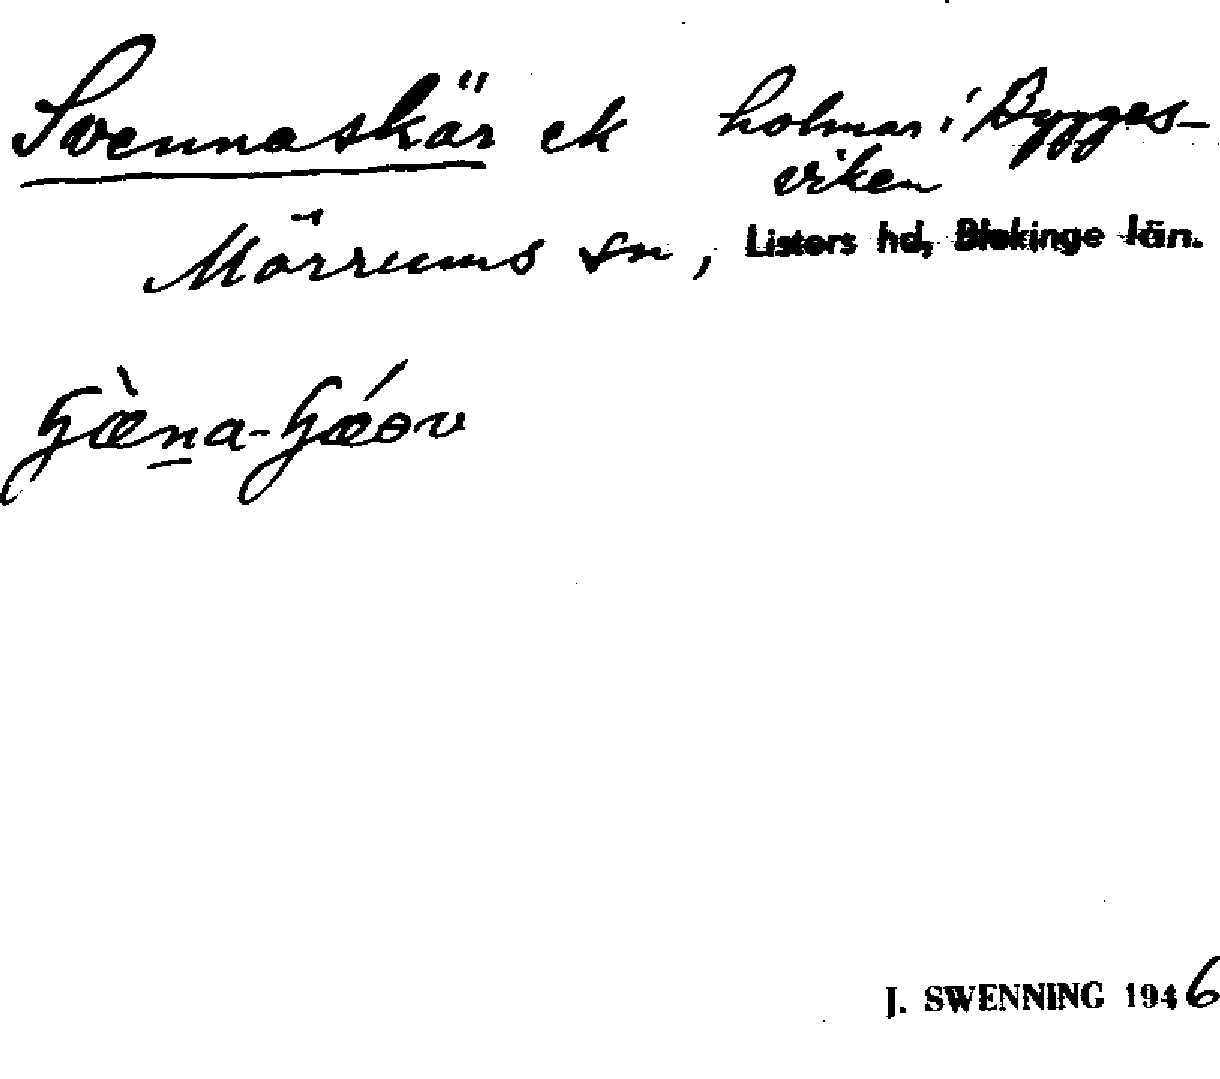 Svennaskär ek holmar i Bygges-
viken
Mörrums sn, Listers hd, Blekinge län.
J. SWENNING 1946